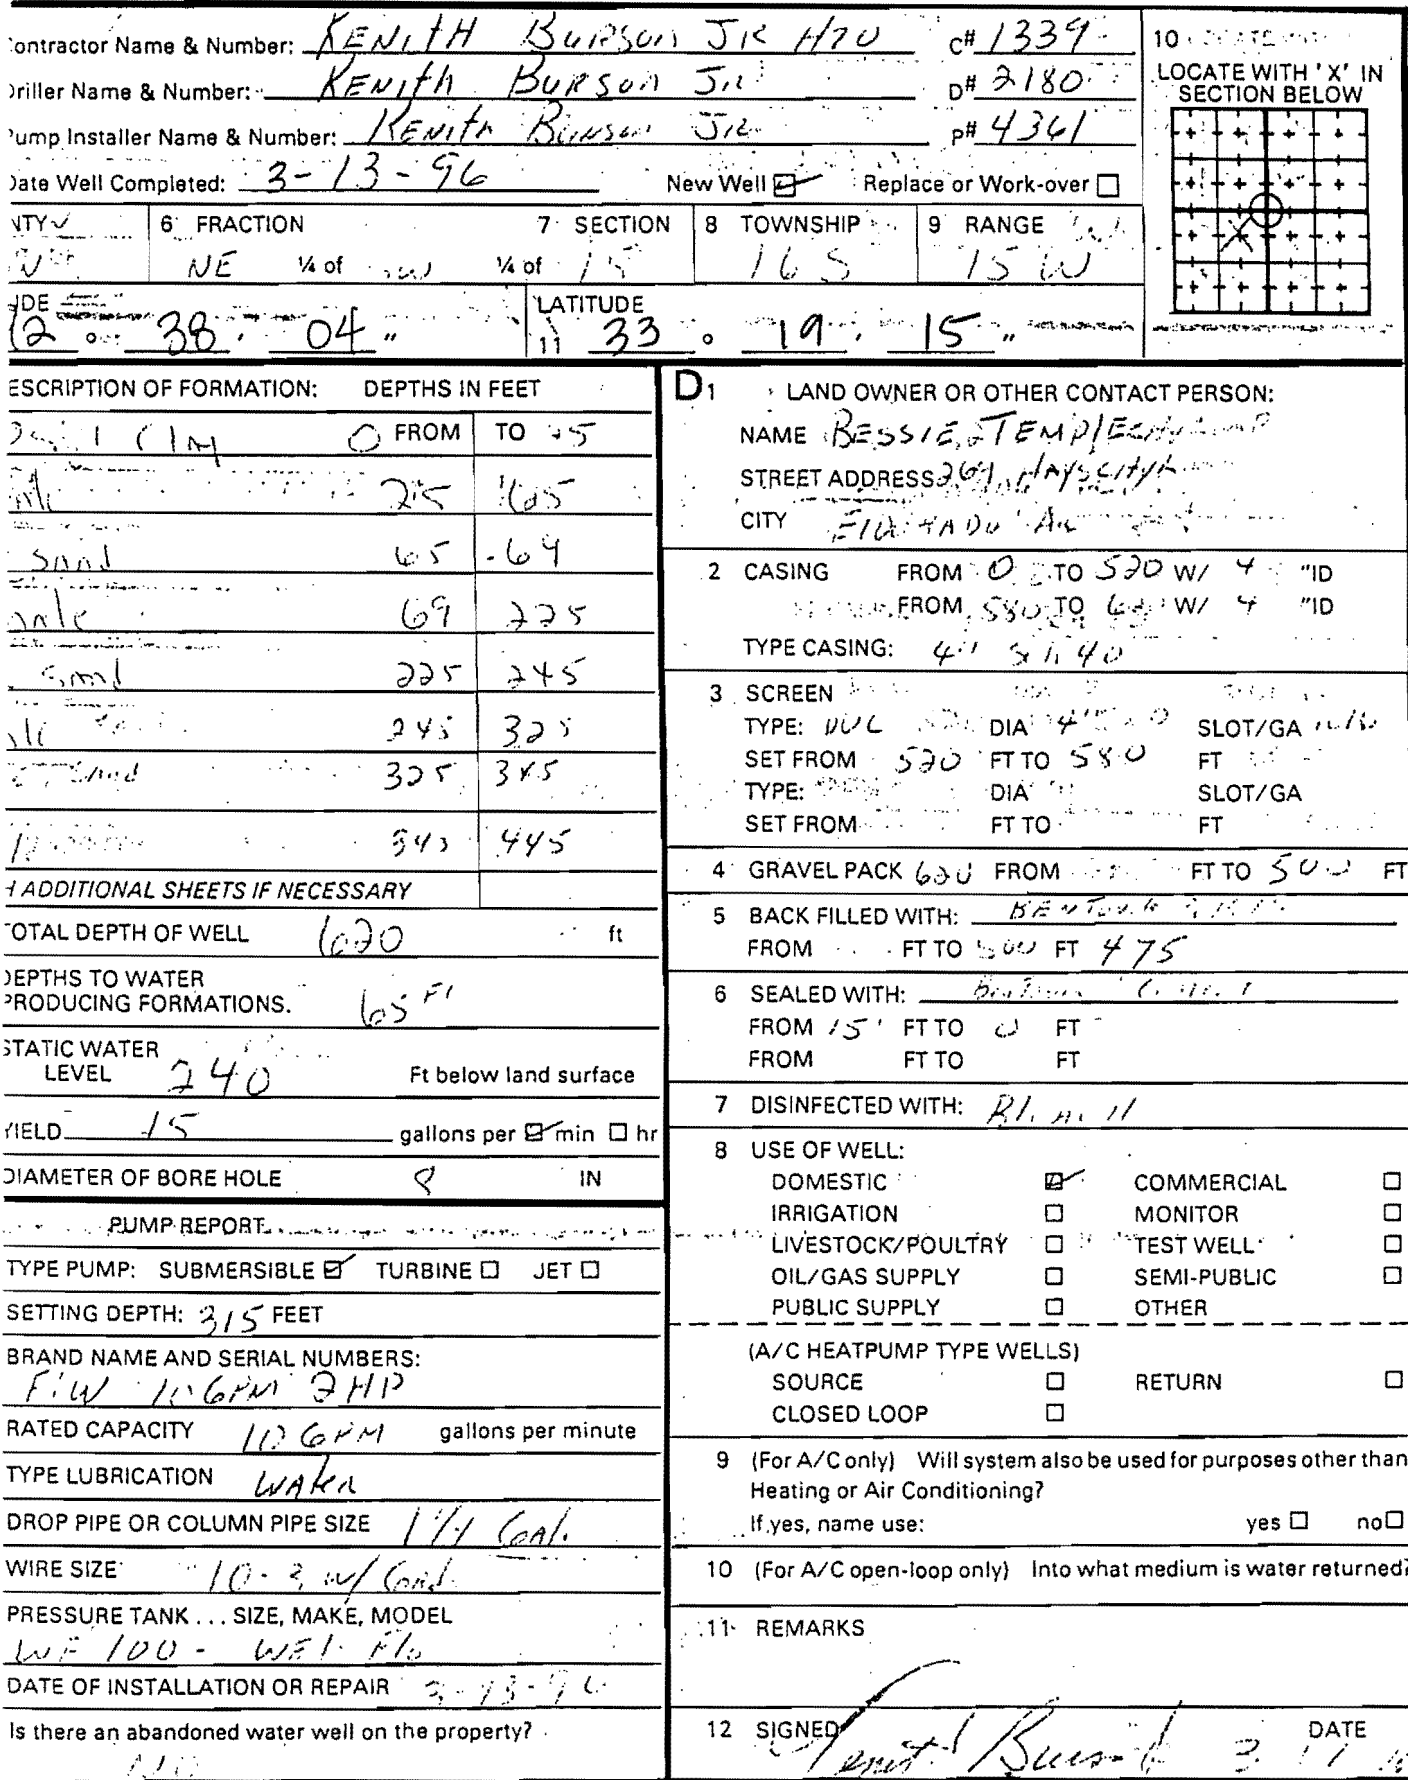 Contractor Name & Number: KENITH BURSON JR H20 C# 1339
Driller Name & Number: KENITH BURSON JR D# 2180
Pump Installer Name & Number: KENITH BURSON JR P# 4361
Date Well Completed: 3-13-96 New Well ☑ Replace or Work-over ☐
10
LOCATE WITH 'X' IN
SECTION BELOW
NTY 6 FRACTION 7 SECTION 8 TOWNSHIP 9 RANGE
NE ¼ of SW ¼ of 15 16 S 15 W
UDE LATITUDE
92 ° 38 ' 04 " 11 33 ° 19 ' 15 "
ESCRIPTION OF FORMATION: DEPTHS IN FEET
Clay 0 FROM TO 25
25 65
Sand 65 69
69 225
Sand 225 245
245 325
Sand 325 345
345 445
H ADDITIONAL SHEETS IF NECESSARY
TOTAL DEPTH OF WELL 620 ft
DEPTHS TO WATER
PRODUCING FORMATIONS. 65 FT
STATIC WATER
LEVEL 240 Ft below land surface
YIELD 15 gallons per ☑ min ☐ hr
DIAMETER OF BORE HOLE 8 IN
PUMP REPORT
TYPE PUMP: SUBMERSIBLE ☑ TURBINE ☐ JET ☐
SETTING DEPTH: 315 FEET
BRAND NAME AND SERIAL NUMBERS:
F.W 10 GPM 2HP
RATED CAPACITY 10 GPM gallons per minute
TYPE LUBRICATION WATER
DROP PIPE OR COLUMN PIPE SIZE 1 1/4 GAL.
WIRE SIZE 10-3 w/
PRESSURE TANK . . . SIZE, MAKE, MODEL
WF 100 -
DATE OF INSTALLATION OR REPAIR 3-13-96
Is there an abandoned water well on the property?
NO
D1 LAND OWNER OR OTHER CONTACT PERSON:
NAME BESSIE
STREET ADDRESS 269
CITY
2 CASING FROM 0 TO 520 W/ 4 "ID
FROM 580 TO 620 W/ 4 "ID
TYPE CASING: 4"
3 SCREEN
TYPE: DIA 4" SLOT/GA
SET FROM 520 FT TO 580 FT
TYPE: DIA SLOT/GA
SET FROM FT TO FT
4 GRAVEL PACK 620 FROM FT TO 500 FT
5 BACK FILLED WITH:
FROM FT TO 500 FT 475
6 SEALED WITH:
FROM 15' FT TO 0 FT
FROM FT TO FT
7 DISINFECTED WITH:
8 USE OF WELL:
DOMESTIC ☑ COMMERCIAL ☐
IRRIGATION ☐ MONITOR ☐
LIVESTOCK/POULTRY ☐ TEST WELL ☐
OIL/GAS SUPPLY ☐ SEMI-PUBLIC ☐
PUBLIC SUPPLY ☐ OTHER
(A/C HEATPUMP TYPE WELLS)
SOURCE ☐ RETURN ☐
CLOSED LOOP ☐
9 (For A/C only) Will system also be used for purposes other than
Heating or Air Conditioning?
If yes, name use: yes ☐ no ☐
10 (For A/C open-loop only) Into what medium is water returned?
11 REMARKS
12 SIGNED DATE